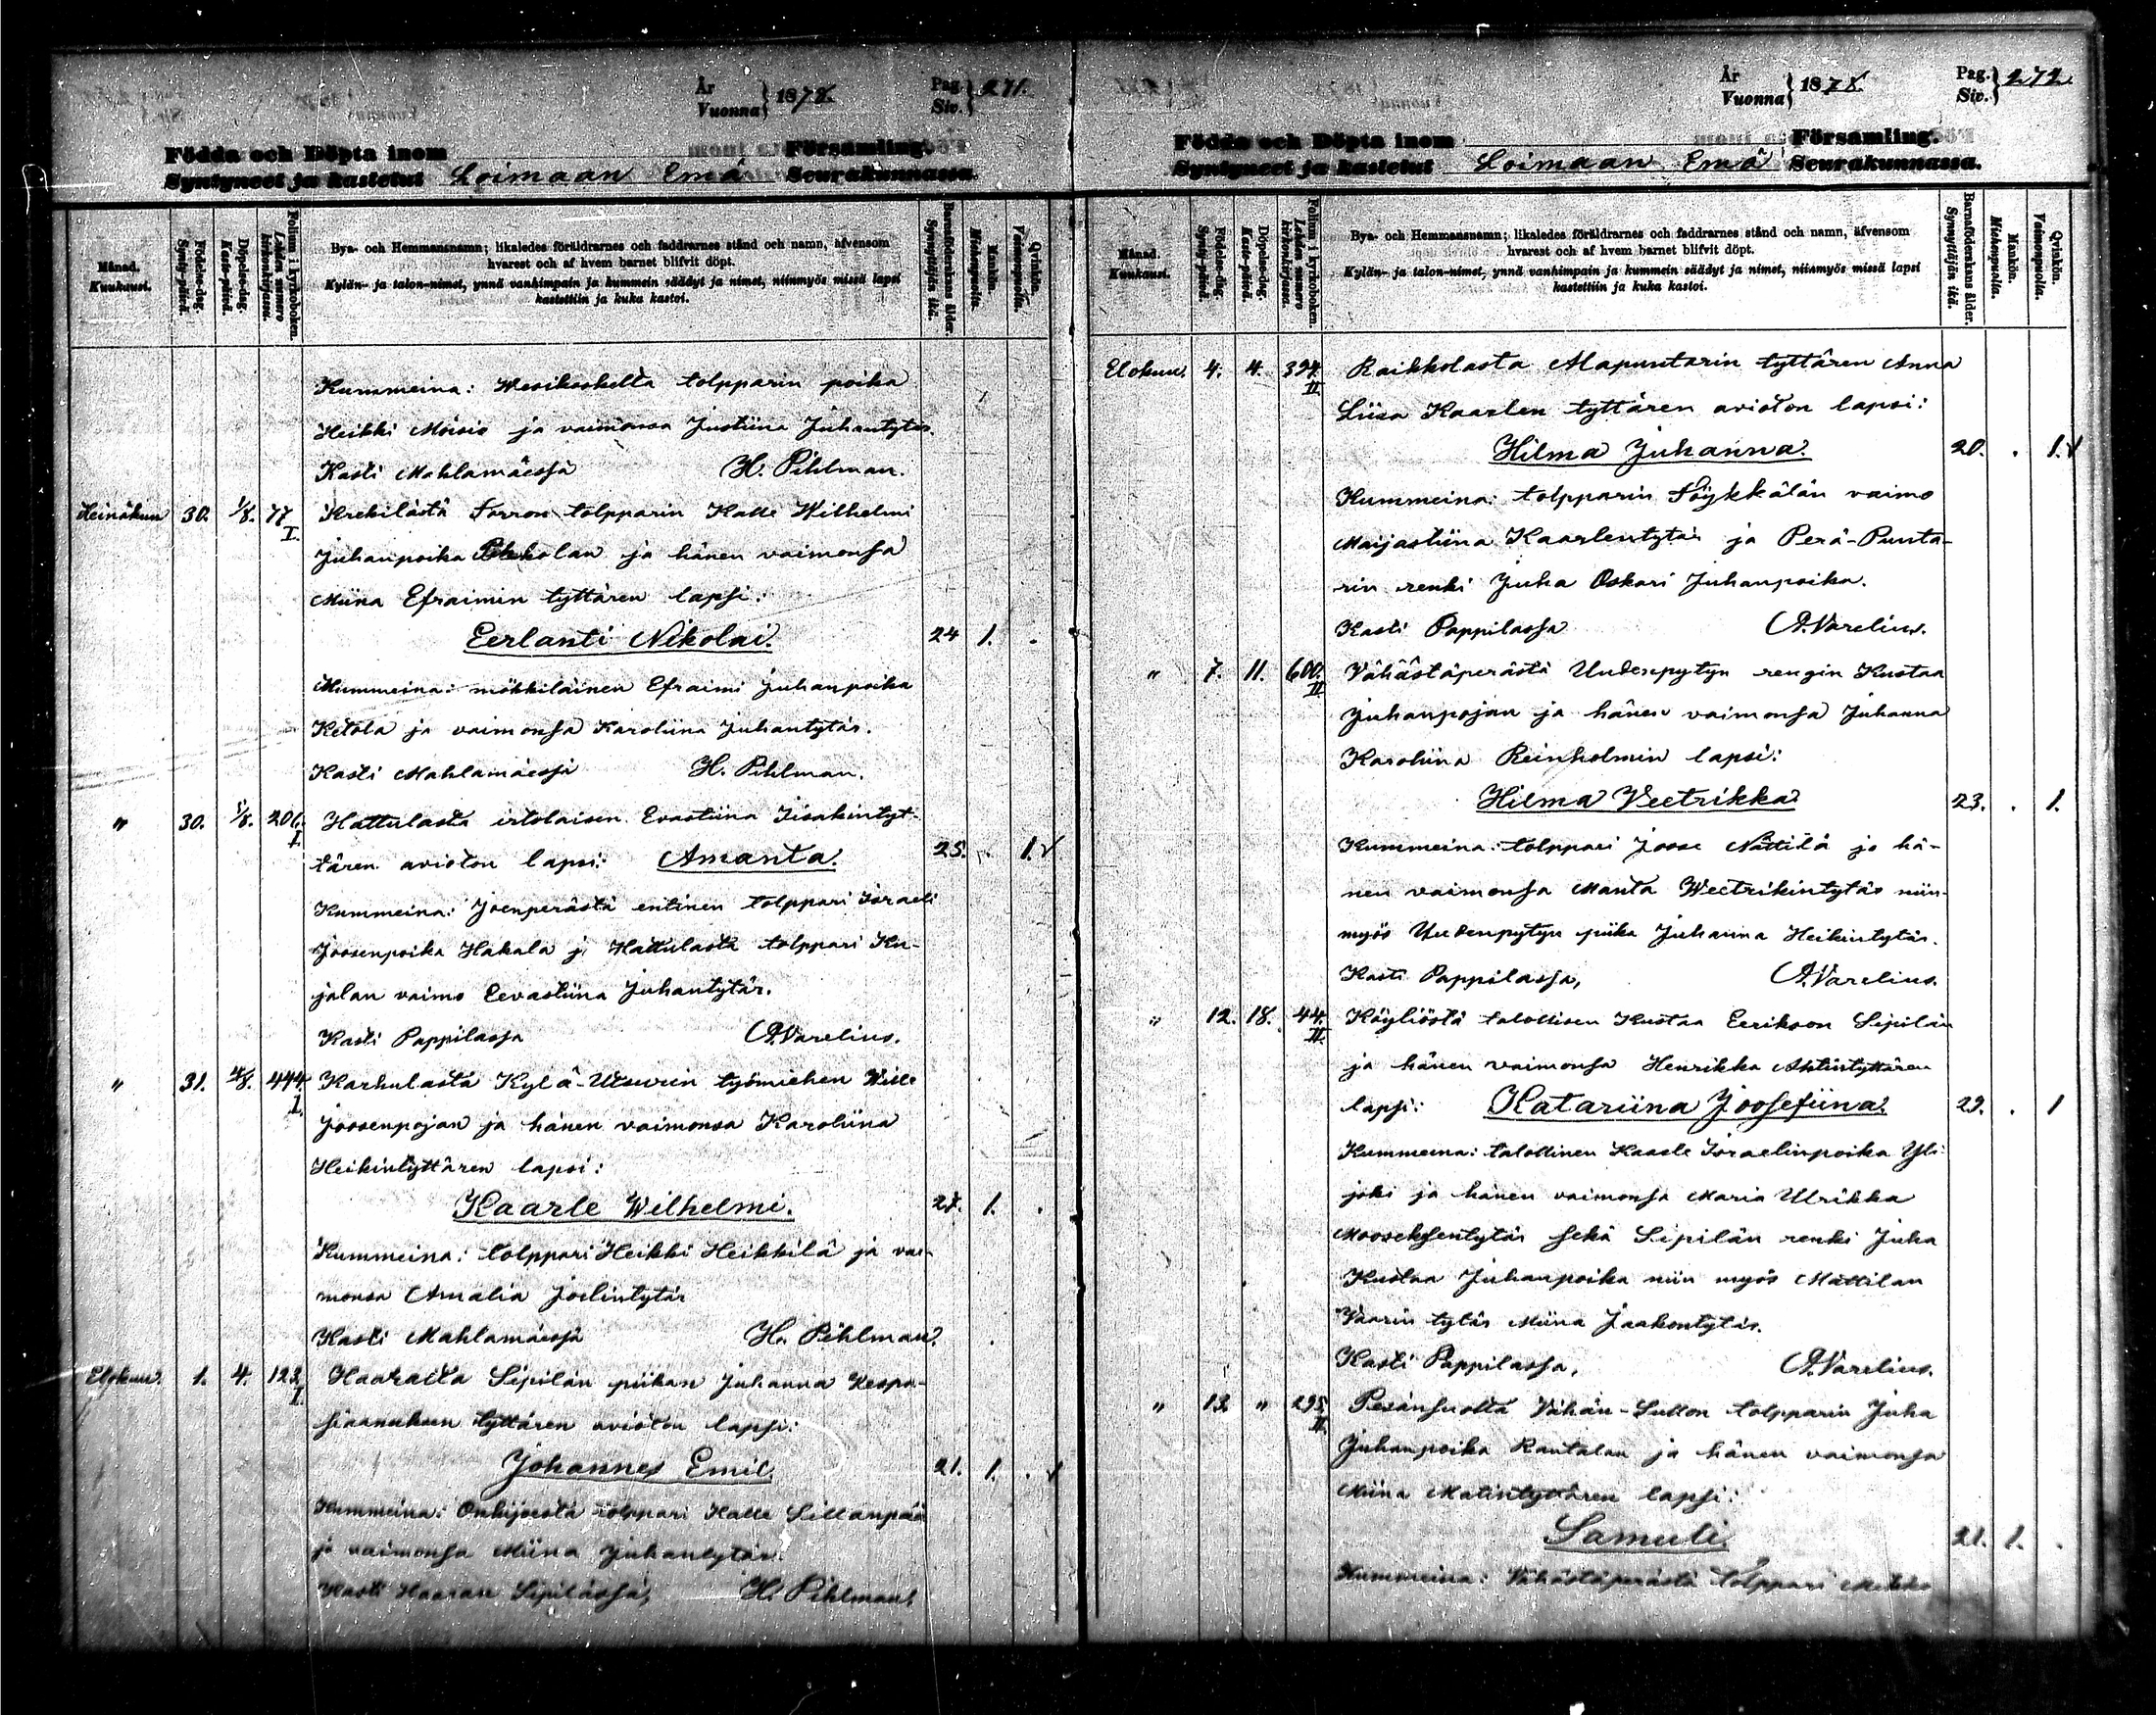 År
Vuonna } 1878. Pag. Siv. } 271.
Födda och Döpta inom Församling.
Syntyneet ja kastetut Loimaan Emä Seurakunnassa.
Månad. Kuukausi.
Födelse-dag. Synty-päivä.
Döpelse-dag. Kaste-päivä.
Folium i kyrkoboken. Lehden numero kirkonkirjassa.
Bya- och Hemmansnamn; likaledes föräldrarnes och faddrarnes stånd och namn, äfvensom
hvarest och af hvem barnet blifvit döpt.
Kylän- ja talon-nimet, ynnä vanhimpain ja kummein säädyt ja nimet, niinmyös missä lapsi
kastettiin ja kuka kastoi.
Barnaföderskans ålder. Synnyttäjän ikä.
Mankön. Miehenpuolia.
Qvinkön. Vaimonpuolia.
Kummeina: Wesikoskelta tolpparin poika
Heikki Moisio ja vaimonsa Justiina Juhantytär.
Kasti Mahlamäessä H. Pihlman.
Heinäkuu 30. 1/8. 77 I. Krekilästä torpparin Kalle Wilhelmi
Juhanpoika ja hänen vaimonsa
Miina Efraimin tyttären lapsi:
Eerlanti Nikolai. 24 1. .
Kummeina: mökkiläinen Efraimi Juhanpoika
Ketola ja vaimonsa Karoliina Juhantytär.
Kasti Mahlamäessä H. Pihlman.
" 30. 5/8. 206. I. Hattulasta irtolaisen Evastiina Iisakintyt-
tären avioton lapsi: Amanta. 25. . 1. √
Kummeina: Joenperästä entinen tolppari Israeli
Joosenpoika Hakala j. Hattulasta tolppari Ku-
jalan vaimo Eevastiina Juhantytär.
Kasti Pappilassa A. Varelius.
" 31. 4/8. 444. I. Karhulasta Kylä-Utsurin työmiehen Wille
Joosenpojan ja hänen vaimonsa Karoliina
Heikintyttären lapsi:
Kaarle Wilhelmi. 1. .
Kummeina: tolppari Heikki Heikkilä ja vai-
monsa Amalia Joelintytär
Kasti Mahlamäessä H. Pihlman.
Elokuu. 1. 4. 123. I. Haaraita Sipilän piikan Juhanna
tyttären avioton lapsi:
Johannes Emil 21. 1. . √
Kummeina: Onkijoesta tolppari Kalle Sillanpää
ja vaimonsa Miina Juhantytär.
Kasti Haaran Sipilässä, H. Pihlman.
År
Vuonna } 1878. Pag. Siv. } 272.
Födda och Döpta inom Församling.
Syntyneet ja kastetut Loimaan Emä Seurakunnassa.
Månad. Kuukausi.
Födelse-dag. Synty-päivä.
Döpelse-dag. Kaste-päivä.
Folium i kyrkoboken. Lehden numero kirkonkirjassa.
Bya- och Hemmansnamn; likaledes föräldrarnes och faddrarnes stånd och namn, äfvensom
hvarest och af hvem barnet blifvit döpt.
Kylän- ja talon-nimet, ynnä vanhimpain ja kummein säädyt ja nimet, niinmyös missä lapsi
kastettiin ja kuka kastoi.
Barnaföderskans ålder. Synnyttäjän ikä.
Mankön. Miehenpuolia.
Qvinkön. Vaimonpuolia.
Elokuu. 4. 4. 394. II. Raikkolasta Alapuntarin tyttären Anna
Liisa Kaarlen tyttären avioton lapsi:
Hilma Juhanna. 20. . 1. √
Kummeina: tolpparin Töykkälän vaimo
Maijastiina Kaarlentytär ja Perä-Punta-
rin renki Juha Oskari Juhanpoika.
Kasti Pappilassa A. Varelius.
" 7. 11. 600. II. Vähästäperästä Uudenpytyn rengin Kustaa
Juhanpojan ja hänen vaimonsa Juhanna
Karoliina Reinholmin lapsi:
Hilma Veetrikka 23. . 1.
Kummeina: tolppari Joose Nättilä ja hä-
nen vaimonsa Manta Weetrikintytär niin-
myös Uudenpytyn piika Juhanna Heikintytär.
Kasti Pappilassa, A. Varelius.
" 12. 18. 44. II. Köyliöstä talollisen Kustaa Eerikson Sipilän
ja hänen vaimonsa Henrikka Ahtintyttären
lapsi: Katariina Joosefiina. 29. . 1
Kummeina: talollinen Kaarle Israelinpoika Yli-
joki ja hänen vaimonsa Maria Ulrikka
Mooseksentytär sekä Sipilän renki Juha
Kustaa Juhanpoika niin myös Mattilan
Vaarin tytär Miina Jaakontytär.
Kasti Pappilassa, A. Varelius.
" 13. " 295. II. Pesänsuolta Vähän-Sutton tolpparin Juha
Juhanpoika Rautalan ja hänen vaimonsa
Miina Matintyttären lapsi:
Samuli. 21. 1. .
Kummeina: Vähästäperästä tolppari Mikko